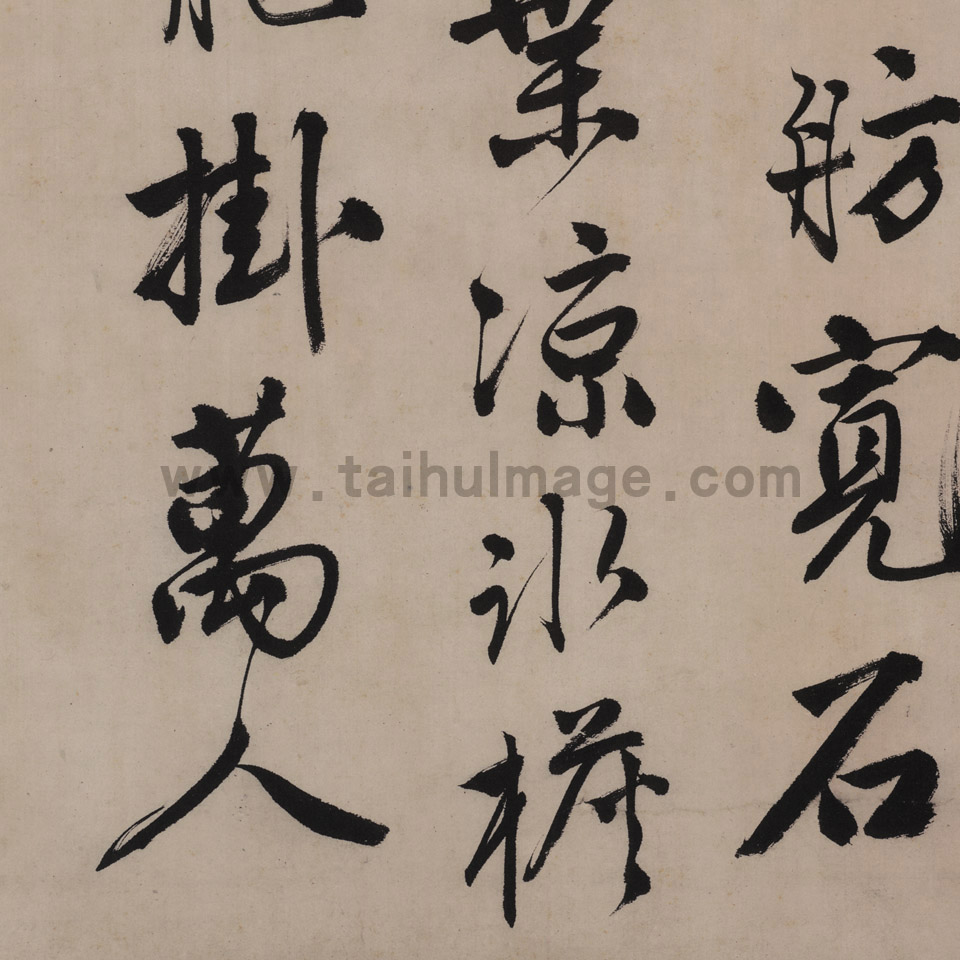 舫寬石
葉涼冰樹
掛萬人
www.taihuImage.com